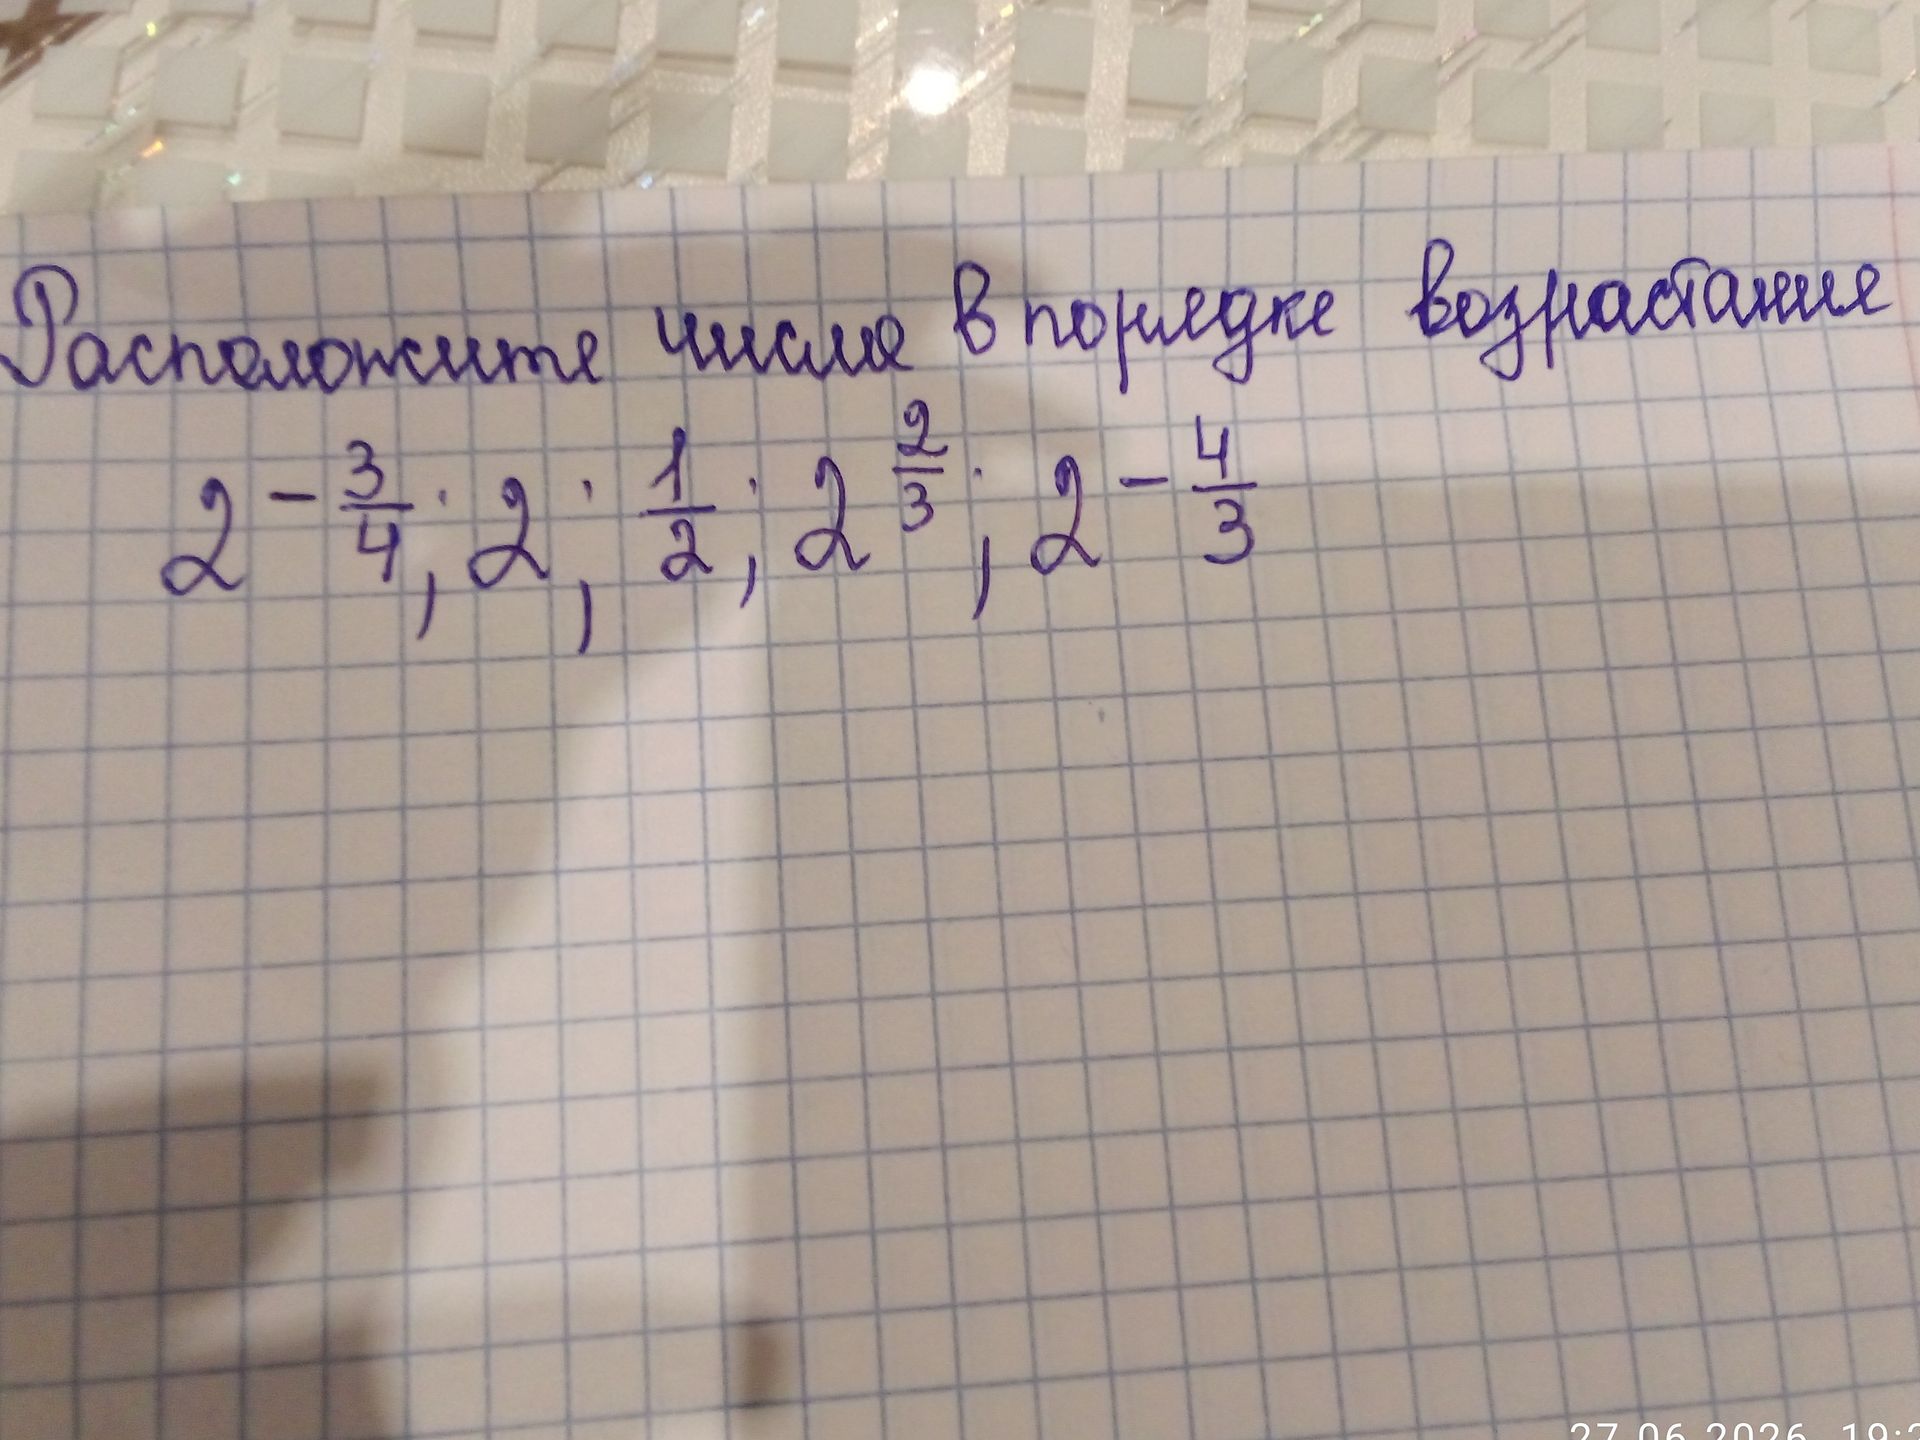 Расположите числа в порядке возрастания
2^{-\frac{3}{4}}; 2; \frac{1}{2}; 2^{\frac{2}{3}}; 2^{-\frac{4}{3}}
27.06.2026 19:2